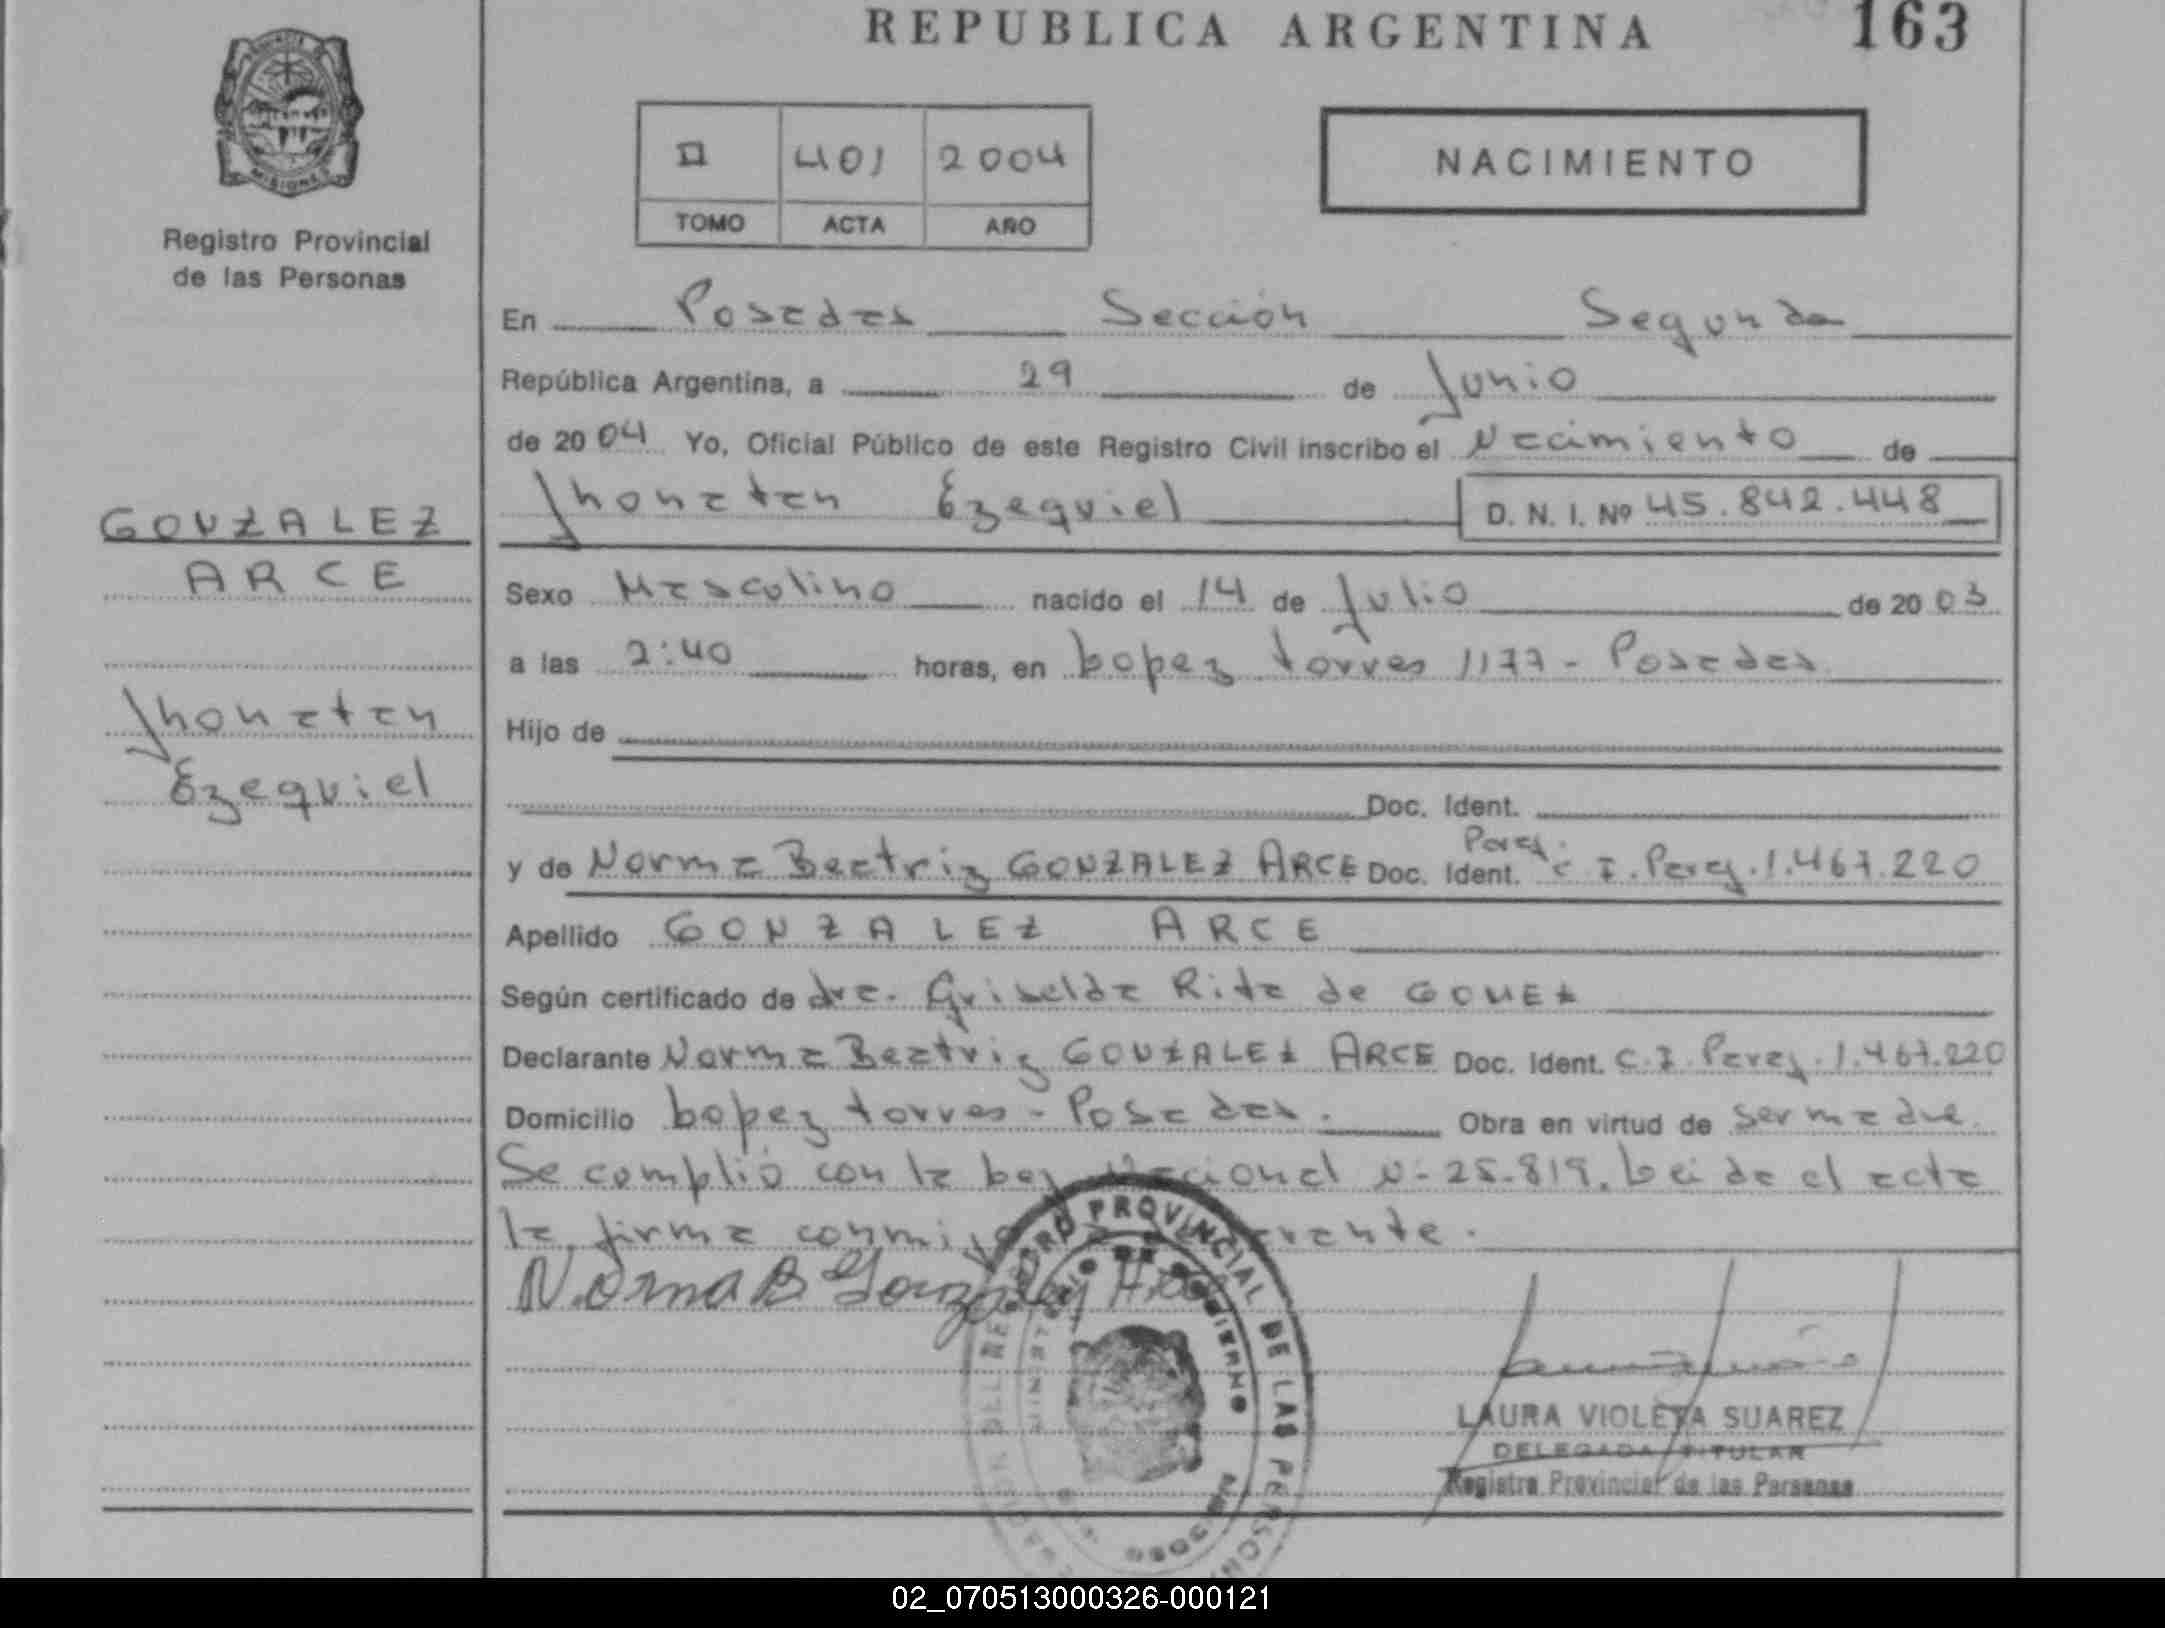 REPUBLICA ARGENTINA 163
MISIONES
Registro Provincial
de las Personas
II 401 2004
TOMO ACTA AÑO
NACIMIENTO
En Posadas Sección Segunda
República Argentina, a 29 de Junio
de 2004 Yo, Oficial Público de este Registro Civil inscribo el Nacimiento de
Jhonatan Ezequiel D. N. I. Nº 45.842.448
GONZALEZ
ARCE
Jhonatan
Ezequiel
Sexo Masculino nacido el 14 de Julio de 2003
a las 2:40 horas, en Lopez torres 1177 - Posadas
Hijo de
Doc. Ident.
y de Norma Beatriz GONZALEZ ARCE Doc. Ident. C I. Paraj. 1.467.220
Apellido GONZALEZ ARCE
Según certificado de dra. Griselda Rita de GOMEZ
Declarante Norma Beatriz GONZALEZ ARCE Doc. Ident. C. I. Paraj. 1.467.220
Domicilio Lopez torres - Posadas. Obra en virtud de ser madre.
Se complió con la Ley Nacional N- 25.819. Leida el acta
la firma conmigo
Norma B Gonzalez Arce
REGISTRO PROVINCIAL DE LAS PERSONAS
LAURA VIOLETA SUAREZ
DELEGADA TITULAR
Registro Provincial de las Personas
02_070513000326-000121